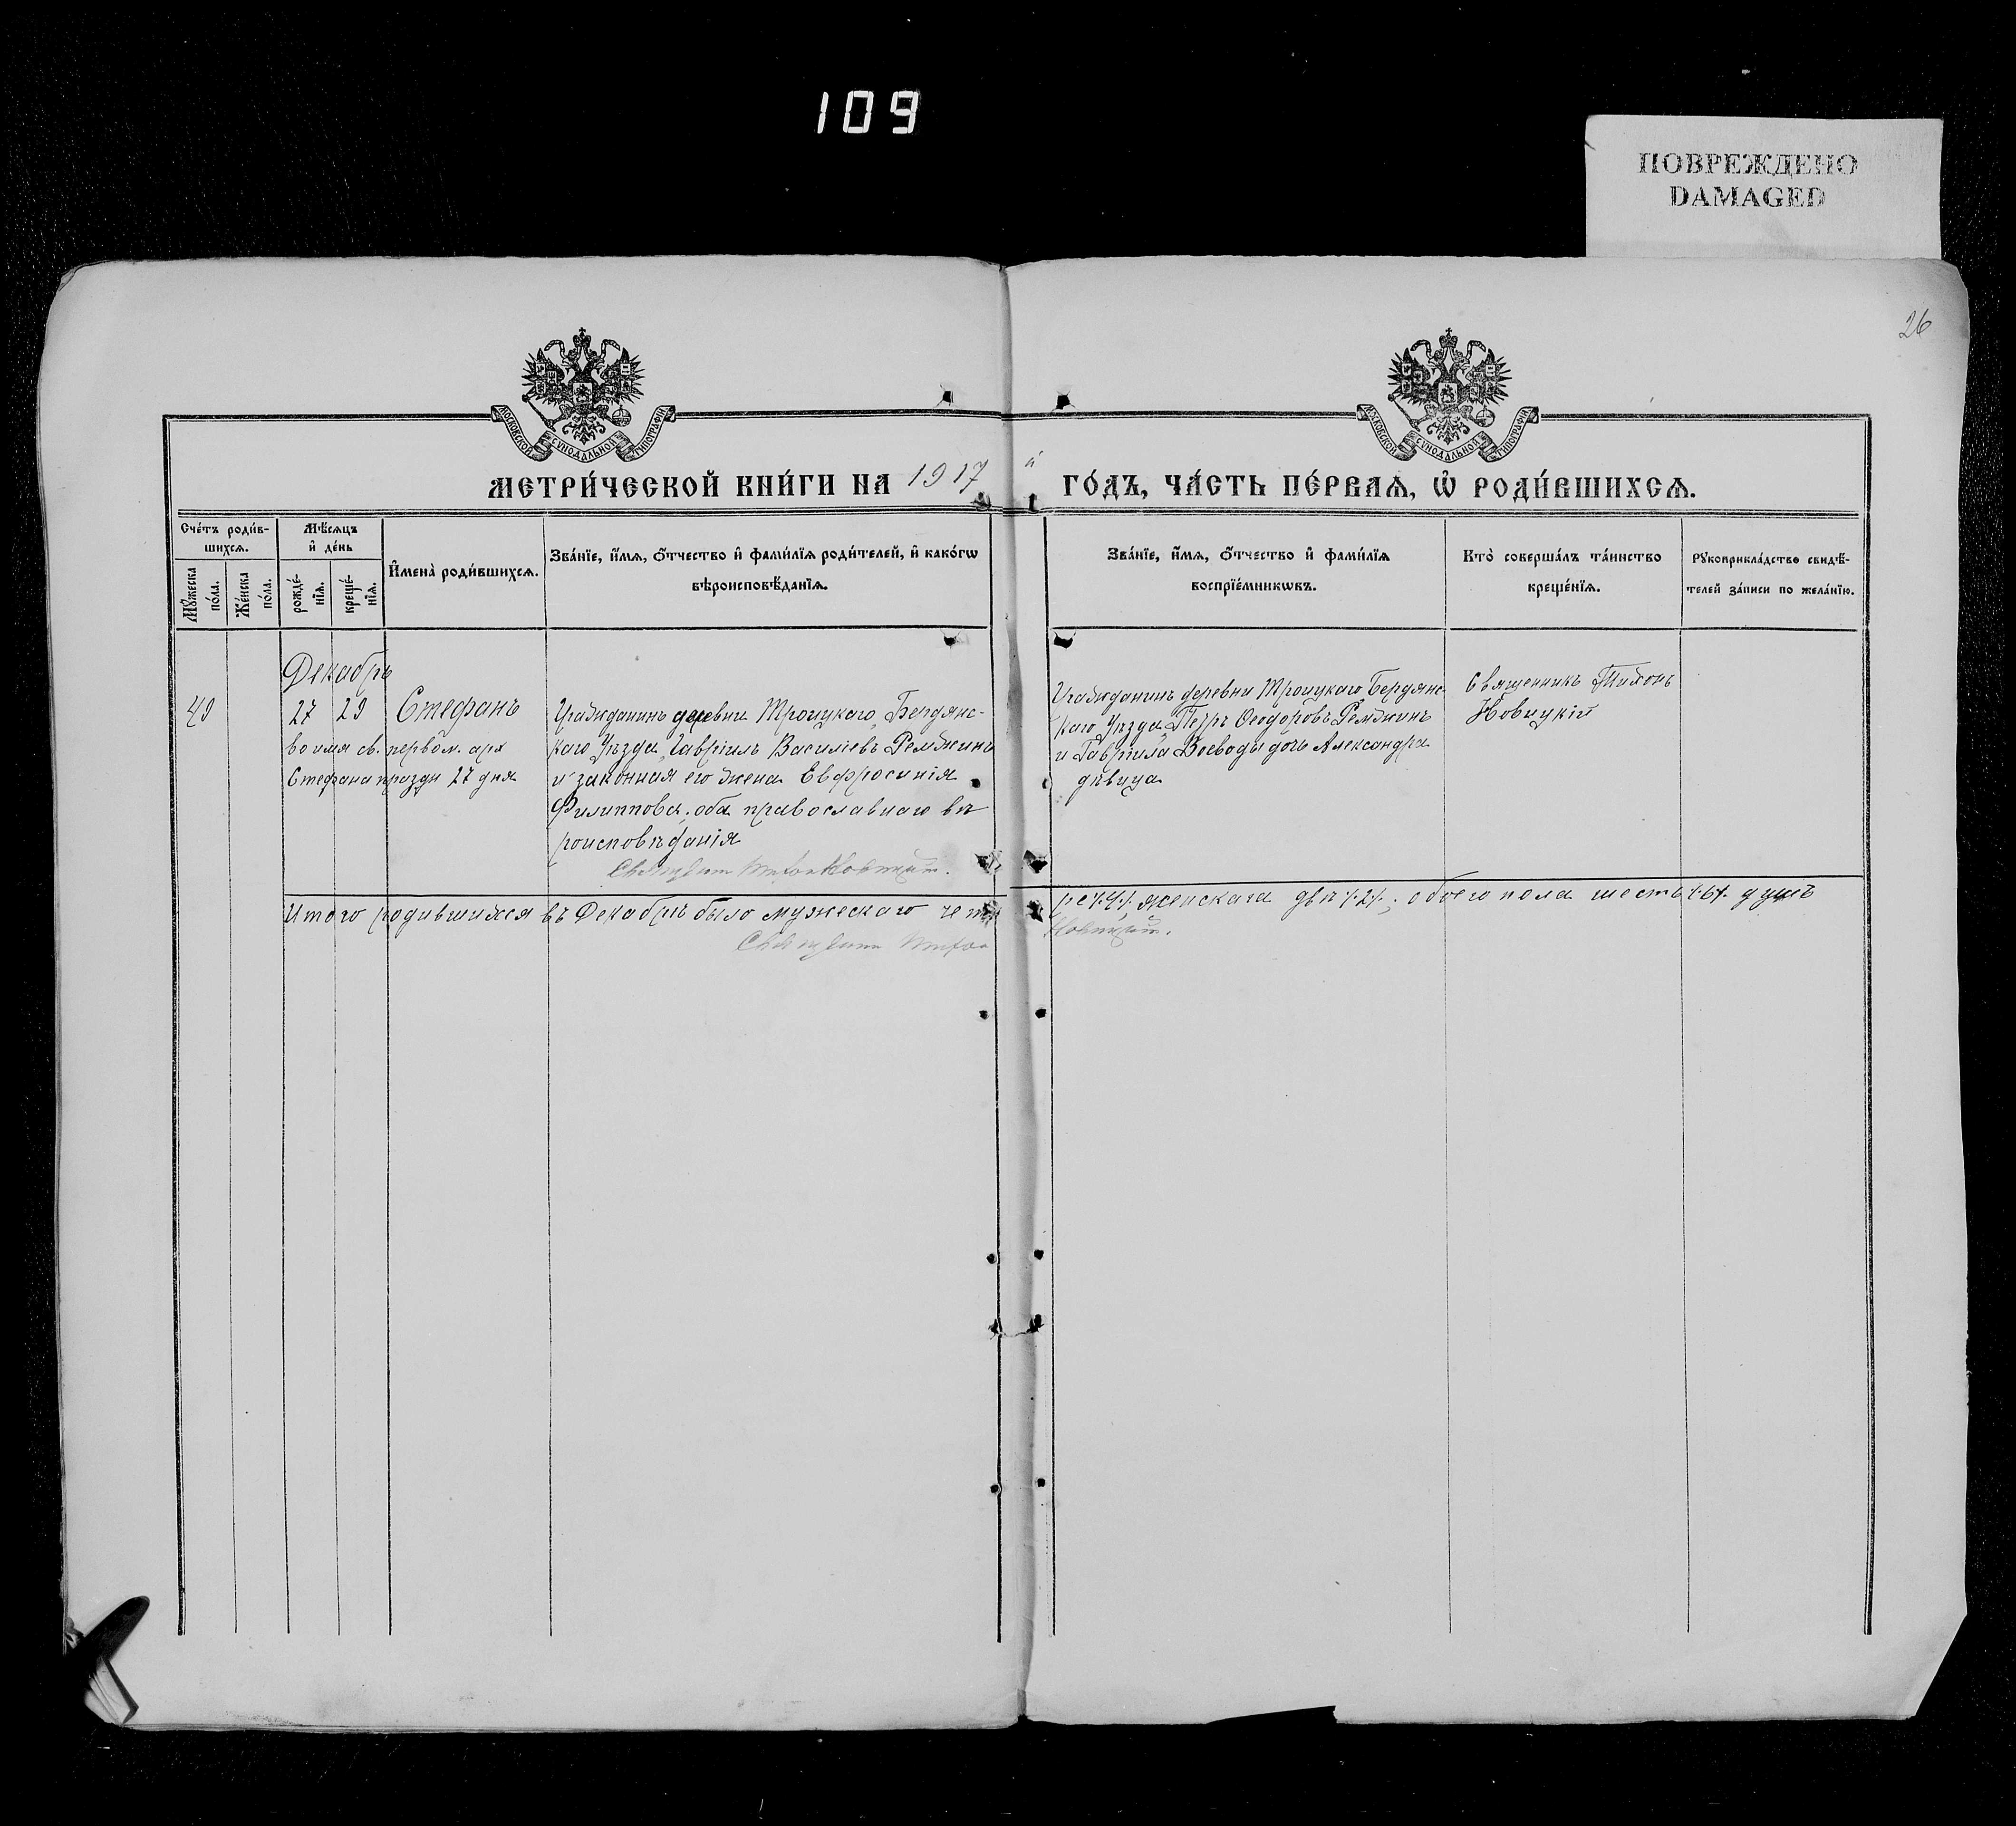 109
ПОВРЕЖДЕНО
DAMAGED
26
МОСКОВСКОЙ СѴНОДАЛЬНОЙ ТИПОГРАФІИ
МОСКОВСКОЙ СѴНОДАЛЬНОЙ ТИПОГРАФІИ
МЕТРИ́ЧЕСКОЙ КНИ́ГИ НА 1917 й ГО́ДЪ, ЧА́СТЬ ПЕ́РВАѦ, Ѡ҆ РОДИ́ВШИХСѦ.
Сче́тъ роди́в-
шихсѧ.
Мꙋ́жеска
по́ла.
Же́нска
по́ла.
Мѣ́сѧцъ
и҆ де́нь
рожде́-
нїѧ.
креще́-
нїѧ.
И҆мена̀ роди́вшихсѧ.
Зва́нїе, и҆́мѧ, ѻ҆́тчество и҆ фами́лїѧ роди́телей, и҆ како́гѡ
вѣроисповѣ́данїѧ.
Зва́нїе, и҆́мѧ, ѻ҆́тчество и҆ фами́лїѧ
воспрїе́мникѡвъ.
Кто̀ соверша́лъ та́инство
креще́нїѧ.
Рꙋкоприкла́дство свидѣ́-
телей за́писи по жела́нїю.
Декабрь
49
27 29 Стефанъ
во имя св. первом. арх
Стефана праздн 27 дня
Гражданинъ деревни Троицкаго, Бердянс-
каго Уѣзда, Гавріилъ Василіевъ Ремжинъ
и законная его жена Евфросинія
Филиппова; оба православнаго вѣ
роисповѣданія
Гражданинъ деревни Троицкаго Бердянс-
каго Уѣзда Петръ Ѳеодоровъ Ремжинъ
и Гавріила Воеводы дочь Александра
дѣвица
Священникъ Тихонъ
Новицкій
Итого родившихся въ Декабрѣ было мужескаго четы ре ·/.4·/., женскаго двѣ ·/.2·/.; обоего пола шесть ·/.6·/. душъ